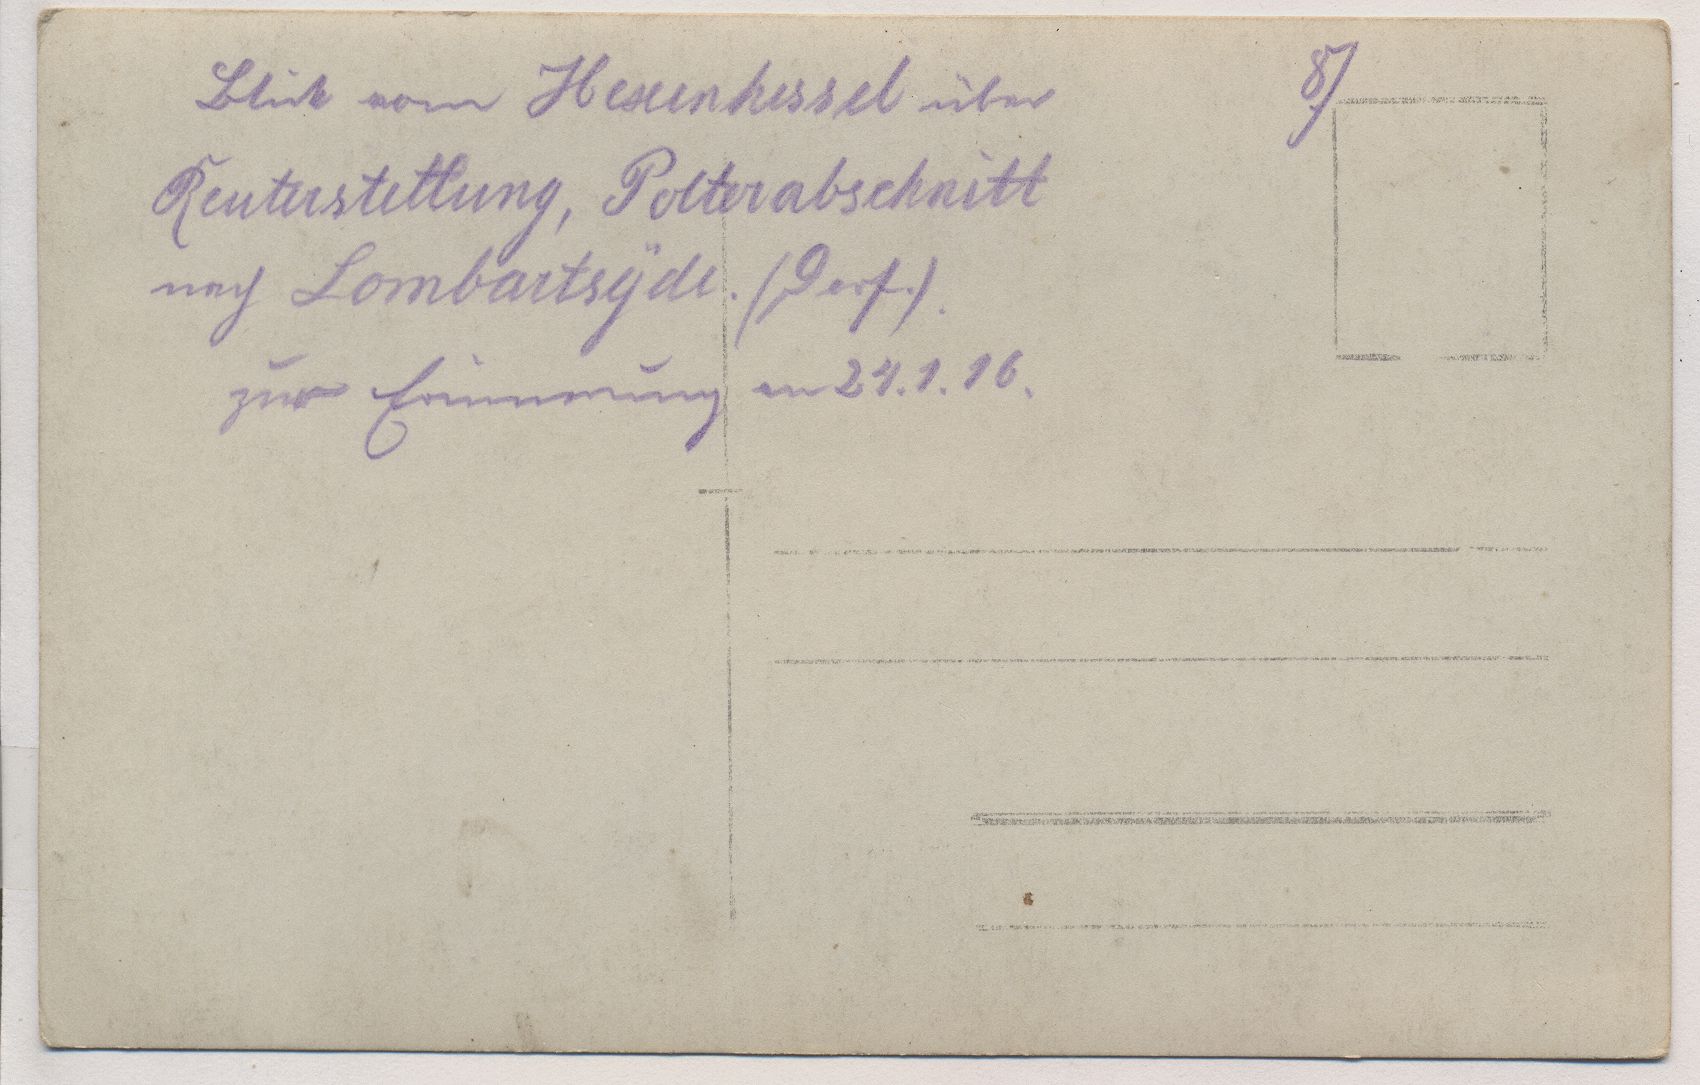 8/
Blick vom Hexenkessel über
Reuterstellung, Polterabschnitt
nach Lombartsÿde. (Dorf.).
zur Erinnerung an 24.1.16.